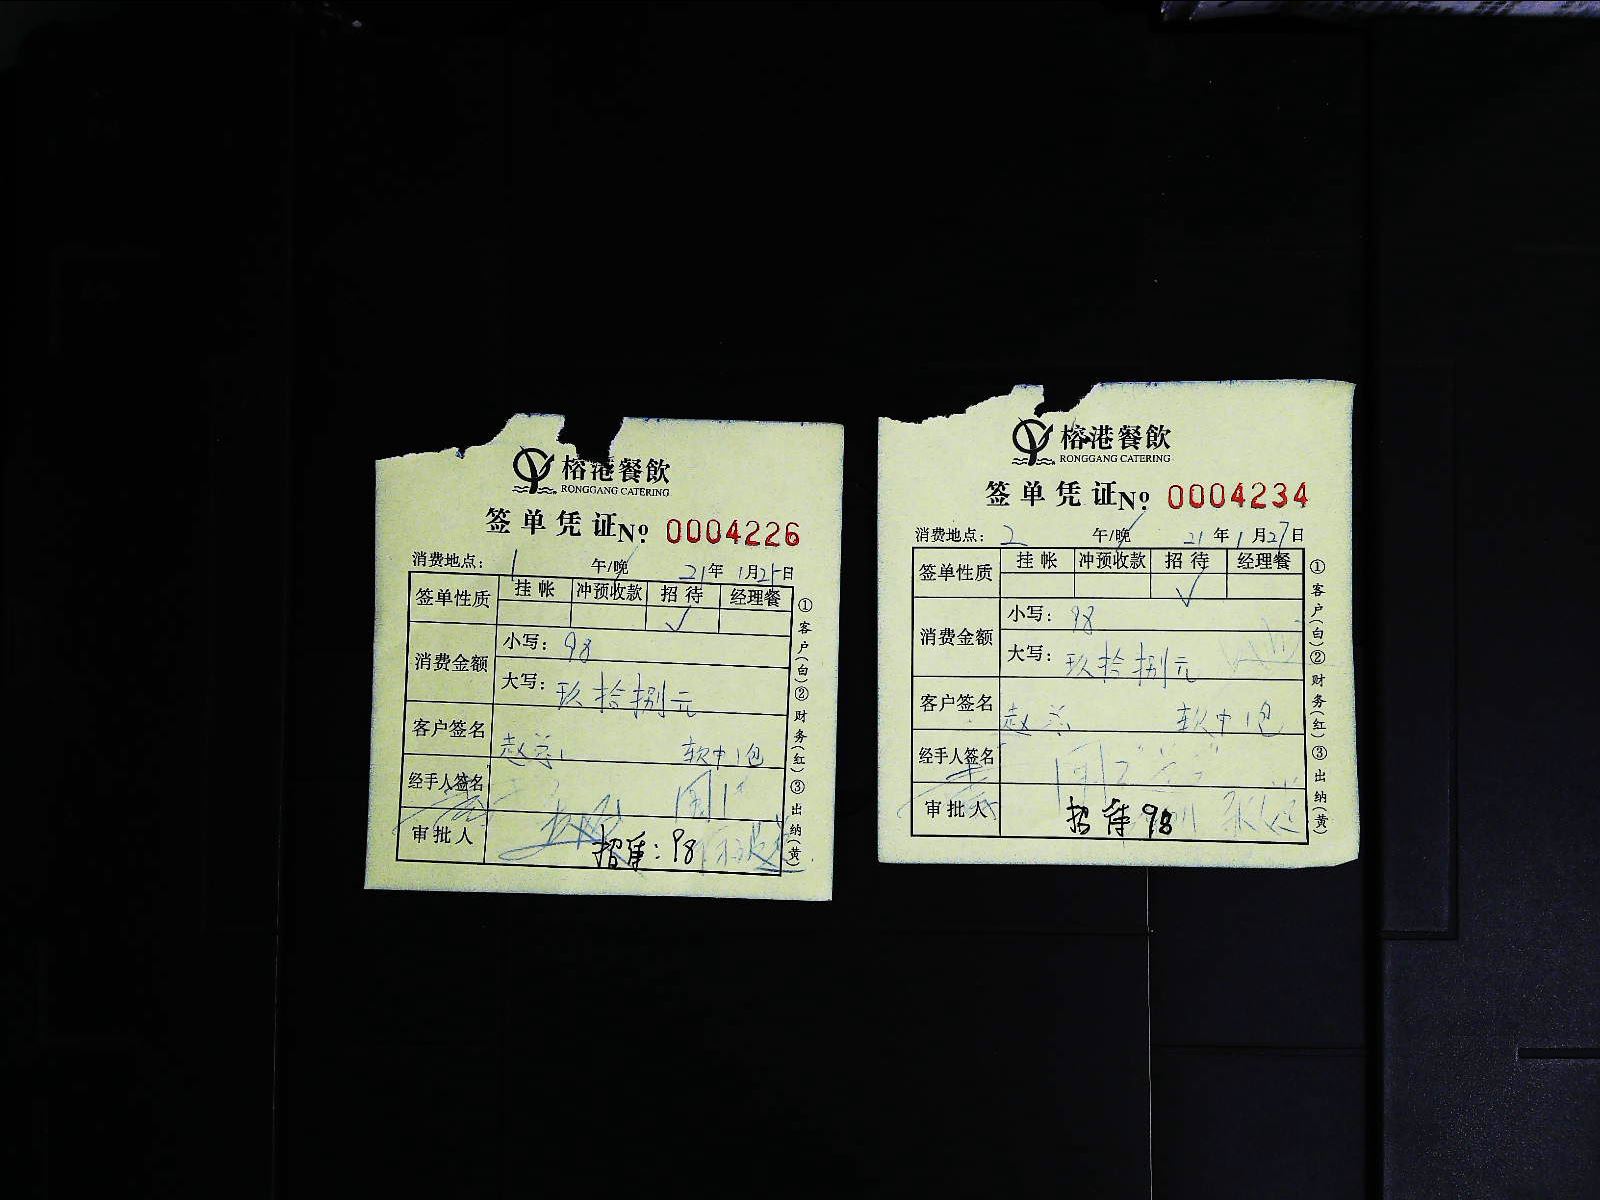 榕港餐飲
RONGGANG CATERING
签单凭证 № 0004226
消费地点: 1 午/晚 21年1月25日
签单性质 挂帐 冲预收款 招待 经理餐
✓
消费金额 小写: 98
大写: 玖拾捌元
客户签名 赵总 软中1包
经手人签名
审批人 招待: 98
①客户(白)②财务(红)③出纳(黄)
榕港餐飲
RONGGANG CATERING
签单凭证 № 0004234
消费地点: 2 午/晚 21年1月27日
签单性质 挂帐 冲预收款 招待 经理餐
✓
消费金额 小写: 98
大写: 玖拾捌元
客户签名 赵总 软中1包
经手人签名
审批人 招待 98
①客户(白)②财务(红)③出纳(黄)